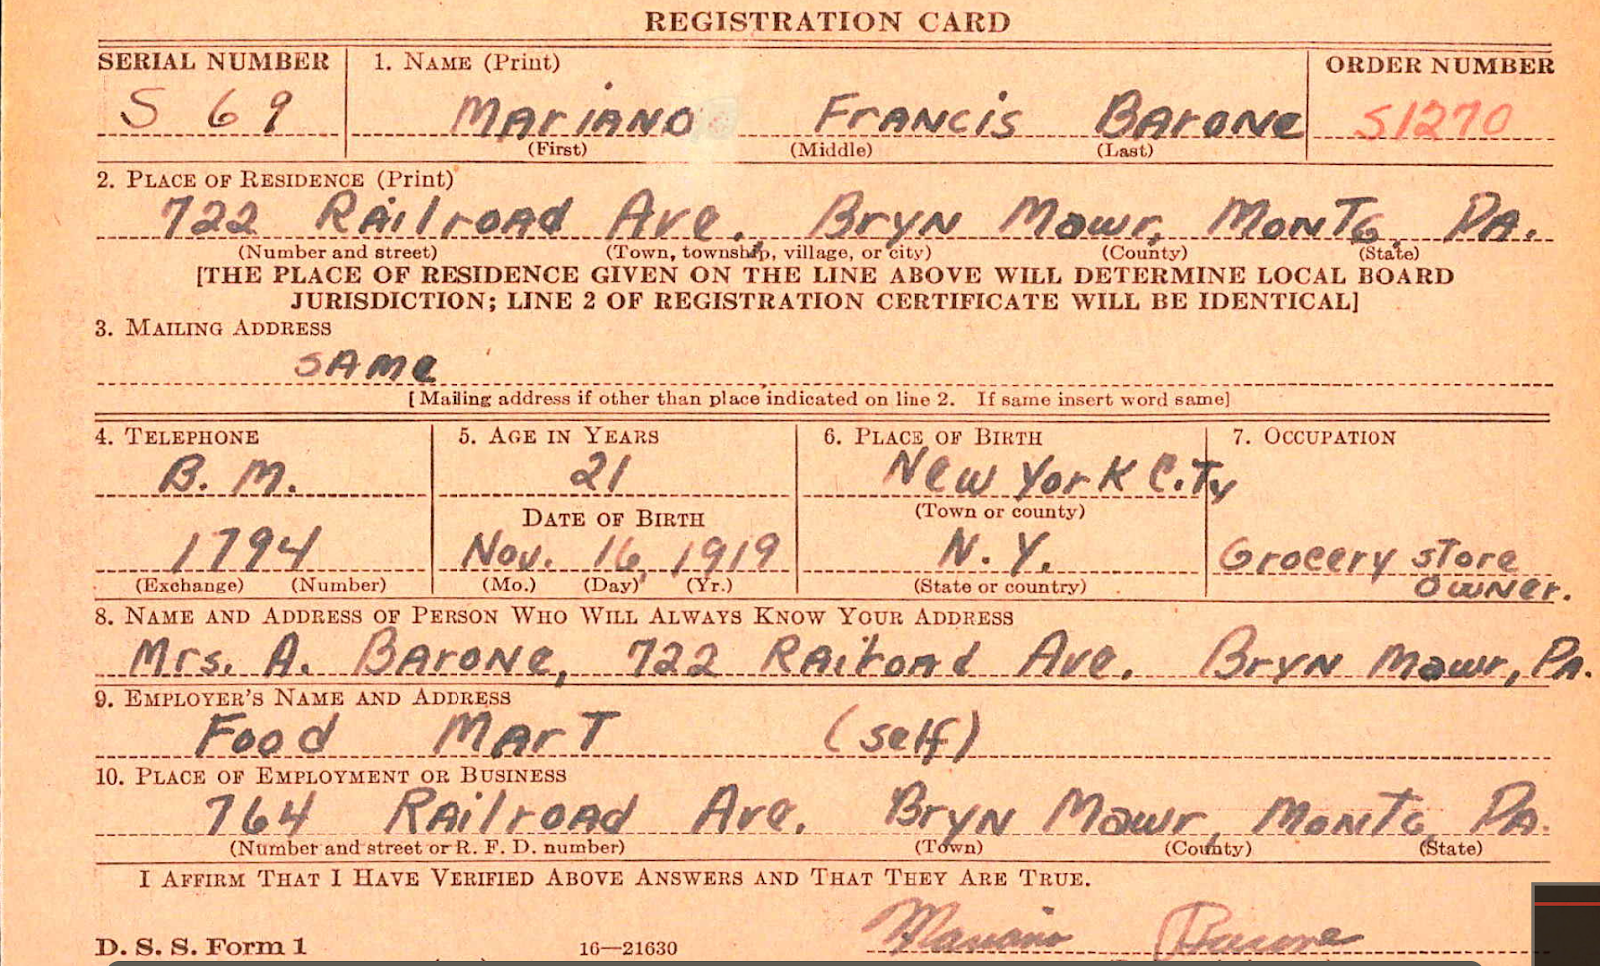 REGISTRATION CARD
SERIAL NUMBER 1. NAME (Print) ORDER NUMBER
S 69 Mariano Francis Barone S1270
(First) (Middle) (Last)
2. PLACE OF RESIDENCE (Print)
722 Railroad Ave. Bryn Mawr, Montg. PA.
(Number and street) (Town, township, village, or city) (County) (State)
[THE PLACE OF RESIDENCE GIVEN ON THE LINE ABOVE WILL DETERMINE LOCAL BOARD
JURISDICTION; LINE 2 OF REGISTRATION CERTIFICATE WILL BE IDENTICAL]
3. MAILING ADDRESS
same
[Mailing address if other than place indicated on line 2. If same insert word same]
4. TELEPHONE 5. AGE IN YEARS 6. PLACE OF BIRTH 7. OCCUPATION
B. M. 21 New York City
DATE OF BIRTH (Town or county)
1794 Nov. 16, 1919 N. Y. Grocery store
(Exchange) (Number) (Mo.) (Day) (Yr.) (State or country) owner.
8. NAME AND ADDRESS OF PERSON WHO WILL ALWAYS KNOW YOUR ADDRESS
Mrs. A. Barone, 722 Railroad Ave. Bryn Mawr, PA.
9. EMPLOYER'S NAME AND ADDRESS
Food Mart (self)
10. PLACE OF EMPLOYMENT OR BUSINESS
764 Railroad Ave. Bryn Mawr, Montg. PA.
(Number and street or R. F. D. number) (Town) (County) (State)
I AFFIRM THAT I HAVE VERIFIED ABOVE ANSWERS AND THAT THEY ARE TRUE.
D. S. S. Form 1 16—21630 Mariano Barone